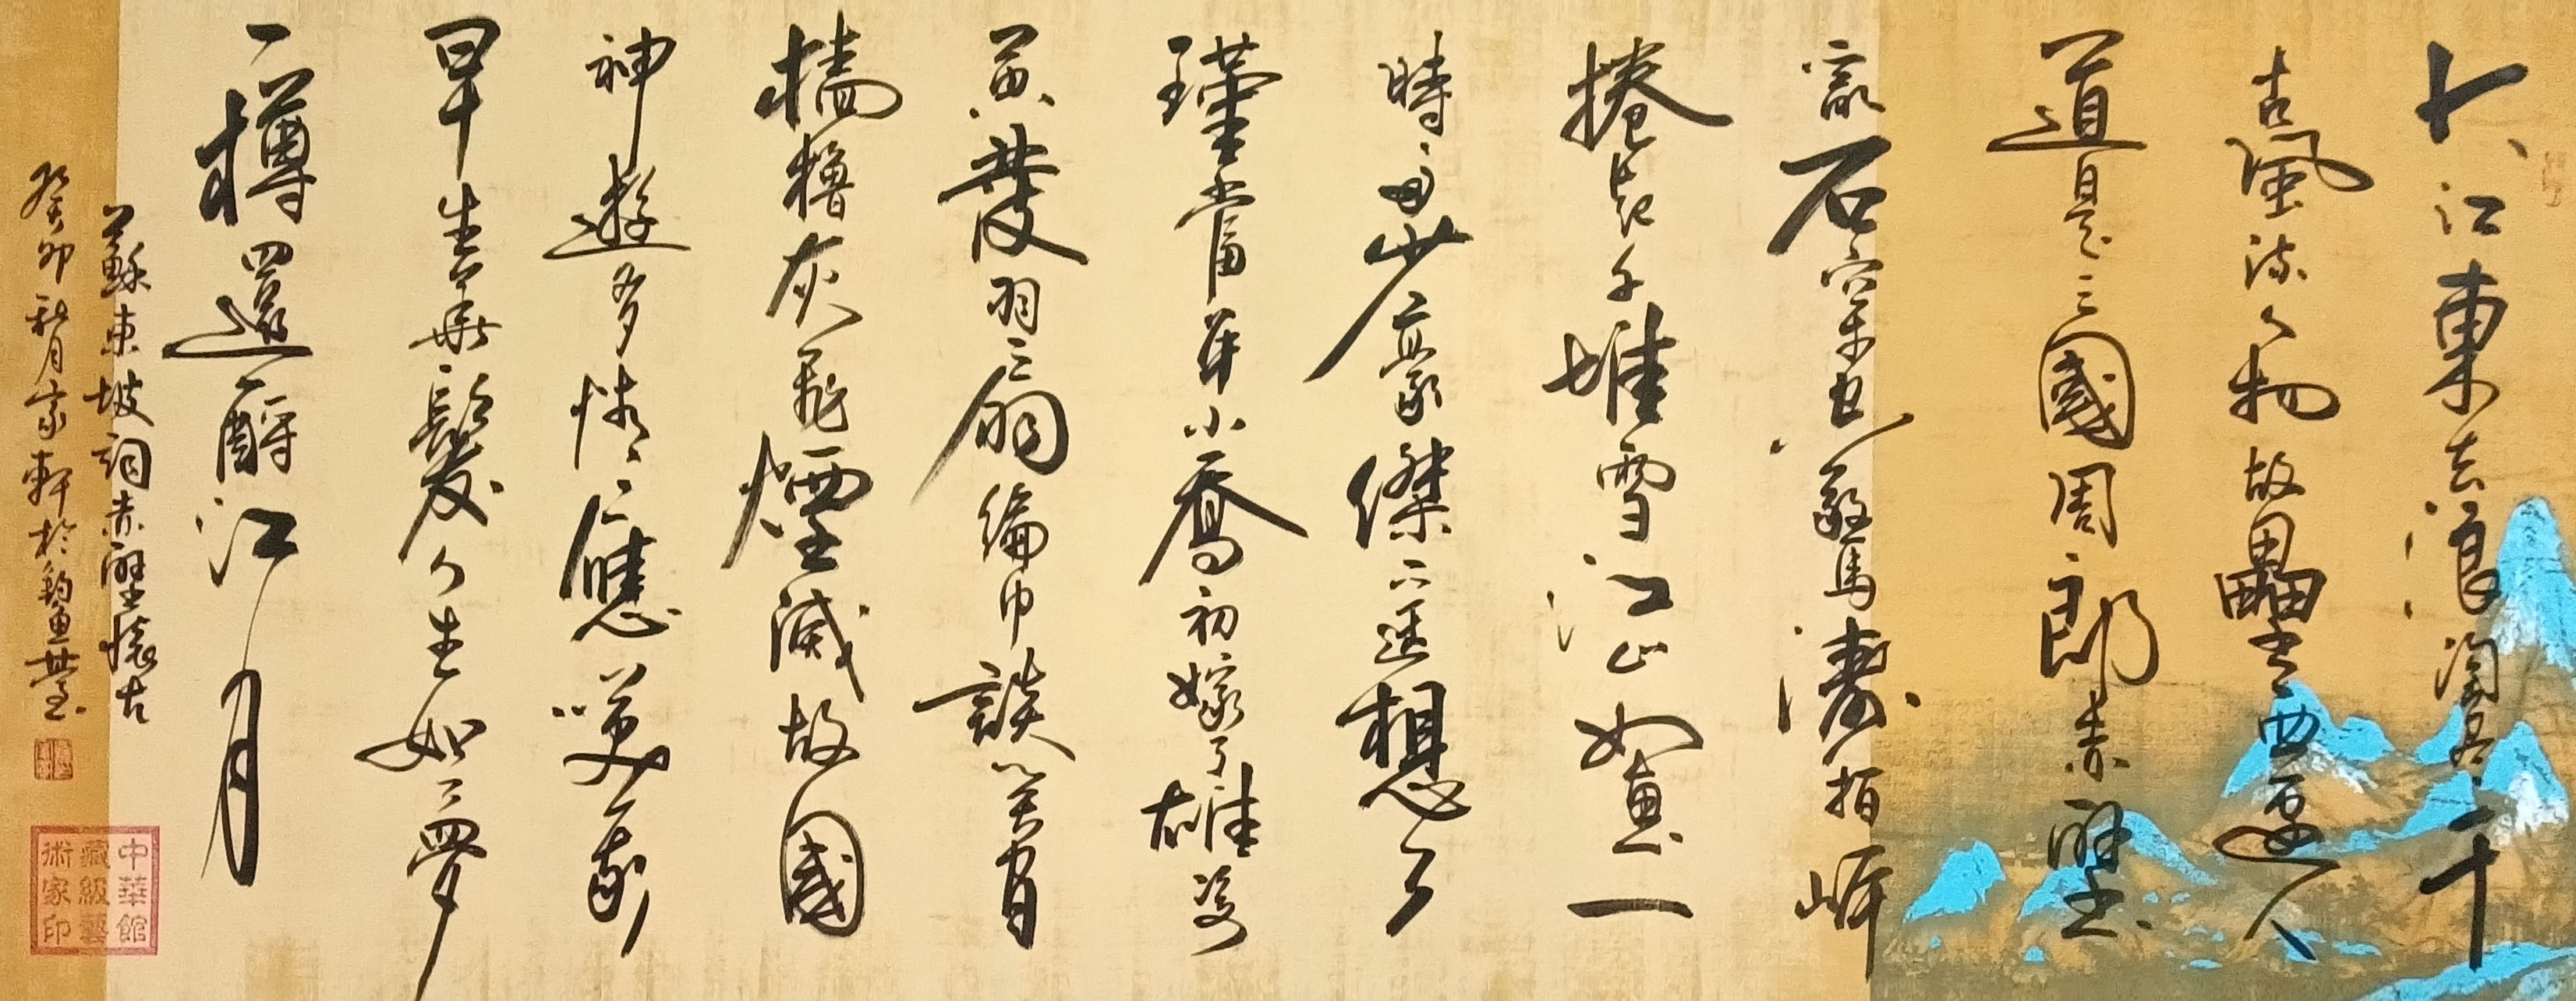 大江東去浪淘盡千
古風流人物故壘西邊人
道是三國周郎赤壁
亂石穿空驚濤拍岸
捲起千堆雪江山如畫一
時多少豪傑遙想公
瑾當年小喬初嫁了雄姿
英發羽扇綸巾談笑間
檣櫓灰飛煙滅故國
神遊多情應笑我
早生華髮人生如夢
一樽還酹江月
蘇東坡詞赤壁懷古
癸卯秋月家軒於釣魚臺
中華館
藏級藝
術家印